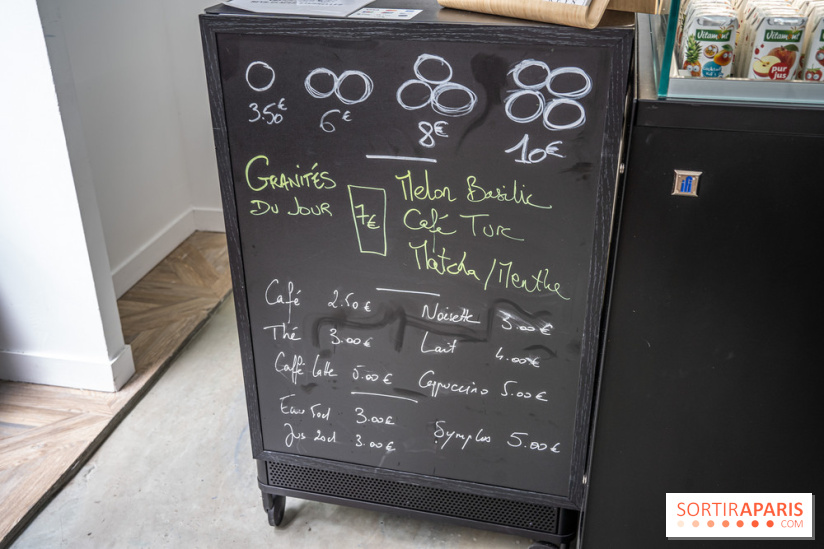 3.50€ 6€ 8€ 10€
GRANITÉS DU JOUR 7€
Melon Basilic
Café Turc
Matcha/Menthe
Café 2.50€ Noisette 3.00€
Thé 3.00€ Lait 4.00€
Caffé Latte 5.00€ Cappuccino 5.00€
3.00€
Jus 20cl 3.00€ Symples 5.00€
Vitamont
Vitamont
pur jus
SORTIRAPARIS
.COM